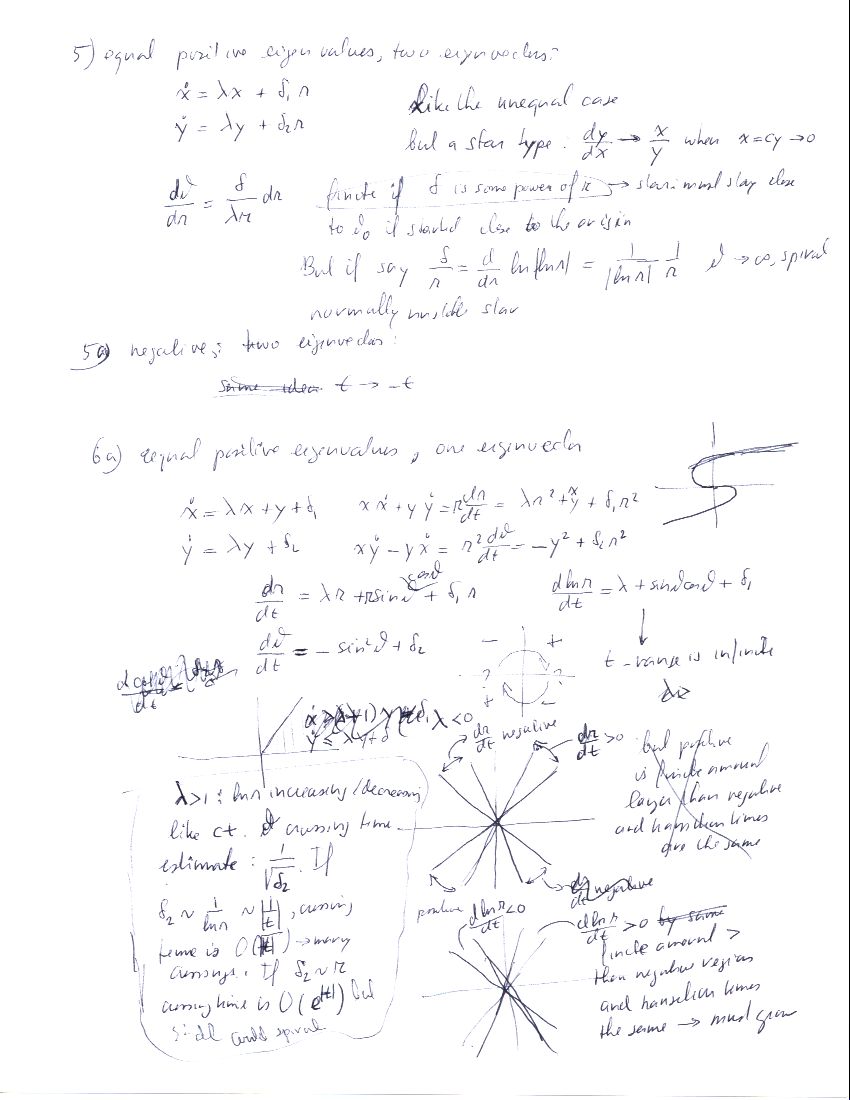 5) equal positive eigenvalues, two eigenvectors:
ẋ = λx + δ₁ r
ẏ = λy + δ₂ r
Like the unequal case
but a star type: dy/dx → x/y when x=cy → 0
dϑ/dr = δ/λr dr
finite if δ is some power of r → star: must stay close
to ϑ₀ if started close to the origin
But if say δ/r = d/dr ln|ln r| = 1/|ln r| 1/r ϑ → ∞, spiral
normally unstable star
5a) negative; two eigenvectors:
t → -t
6a) equal positive eigenvalues, one eigenvector
ẋ = λx + y + δ₁
xẋ + yẏ = r dr/dt = λr² + xy + δ₁r²
ẏ = λy + δ₂
xẏ - yẋ = r² dϑ/dt = -y² + δ₂r²
dr/dt = λr + r sinϑ cosϑ + δ₁ r
d ln r/dt = λ + sinϑ cosϑ + δ₁
dϑ/dt = - sin²ϑ + δ₂
t-range is infinite
- +
? ?
+ -
λ < 0
dr/dt negative
dr/dt > 0
but positive
is finite amount
larger than negative
and transition times
are the same
λ>1: ln r increasing/decreasing
like ct. ϑ crossing time
estimate: 1/√δ₂. If
δ₂ ~ 1/ln r ~ 1/|t|, crossing
time is O(|t|) → many
crossings. If δ₂ ~ r
crossing time is O(e^|t|) but
still could spiral
positive
dr/dt negative
d ln r/dt < 0
d ln r/dt > 0
finite amount >
than negative region
and transition times
the same → must grow